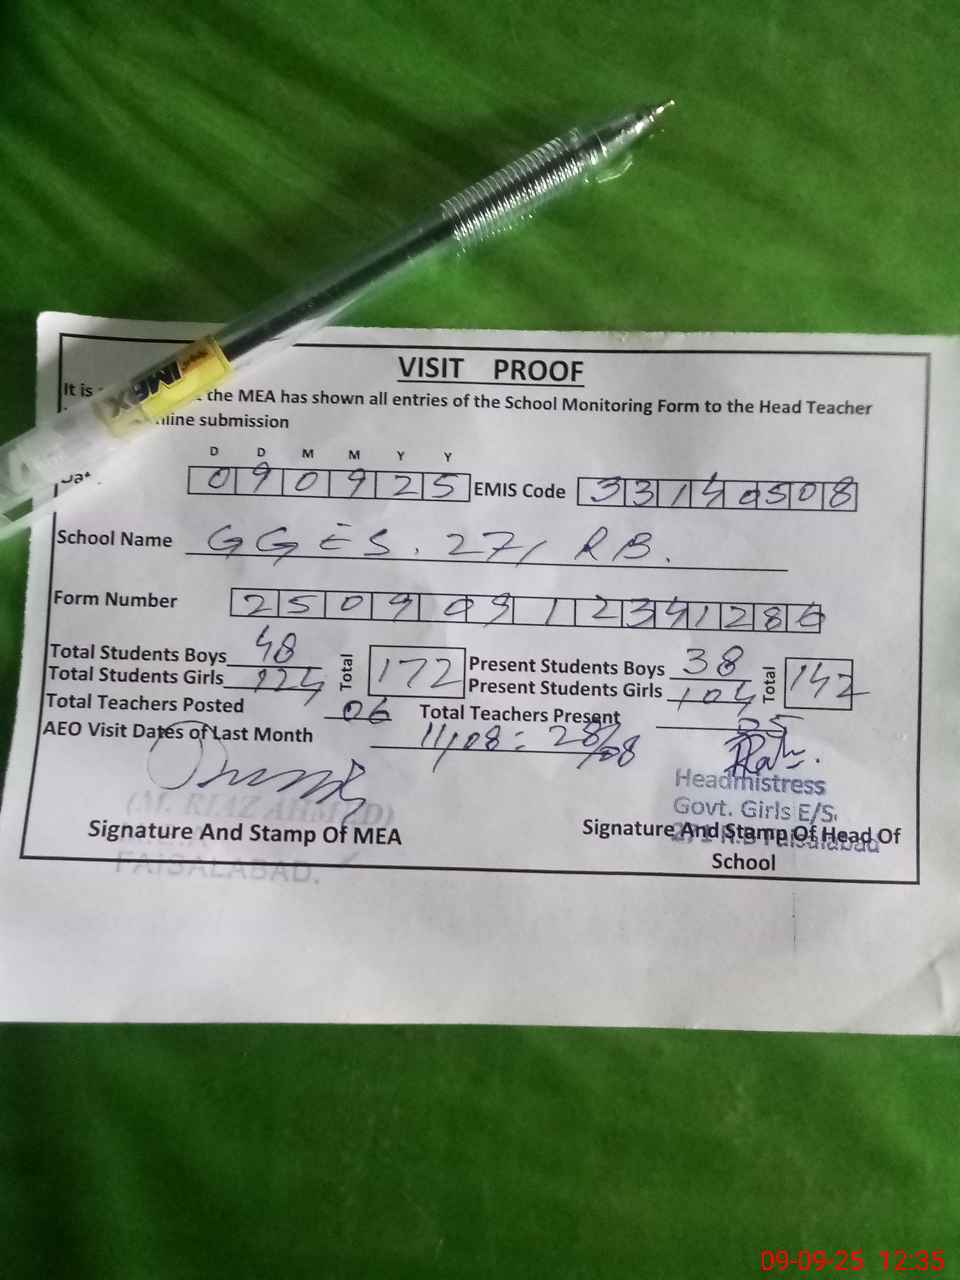 IMAX
VISIT PROOF
It is the MEA has shown all entries of the School Monitoring Form to the Head Teacher
submission
D D M M Y Y
090925 EMIS Code 33140508
School Name GGES. 271 RB.
Form Number 2509091234128
Total Students Boys 48 Total 172 Present Students Boys 38 Total 142
Total Students Girls 124 Present Students Girls 104
Total Teachers Posted 06 Total Teachers Present 05
AEO Visit Dates of Last Month 11/08 = 28/08
Headmistress
(M. RIAZ AHMED) Govt. Girls E/S.
Signature And Stamp Of MEA Signature And Stamp Of Head Of
271 R.B Faisalabad
FAISALABAD. School
09-09-25 12:35